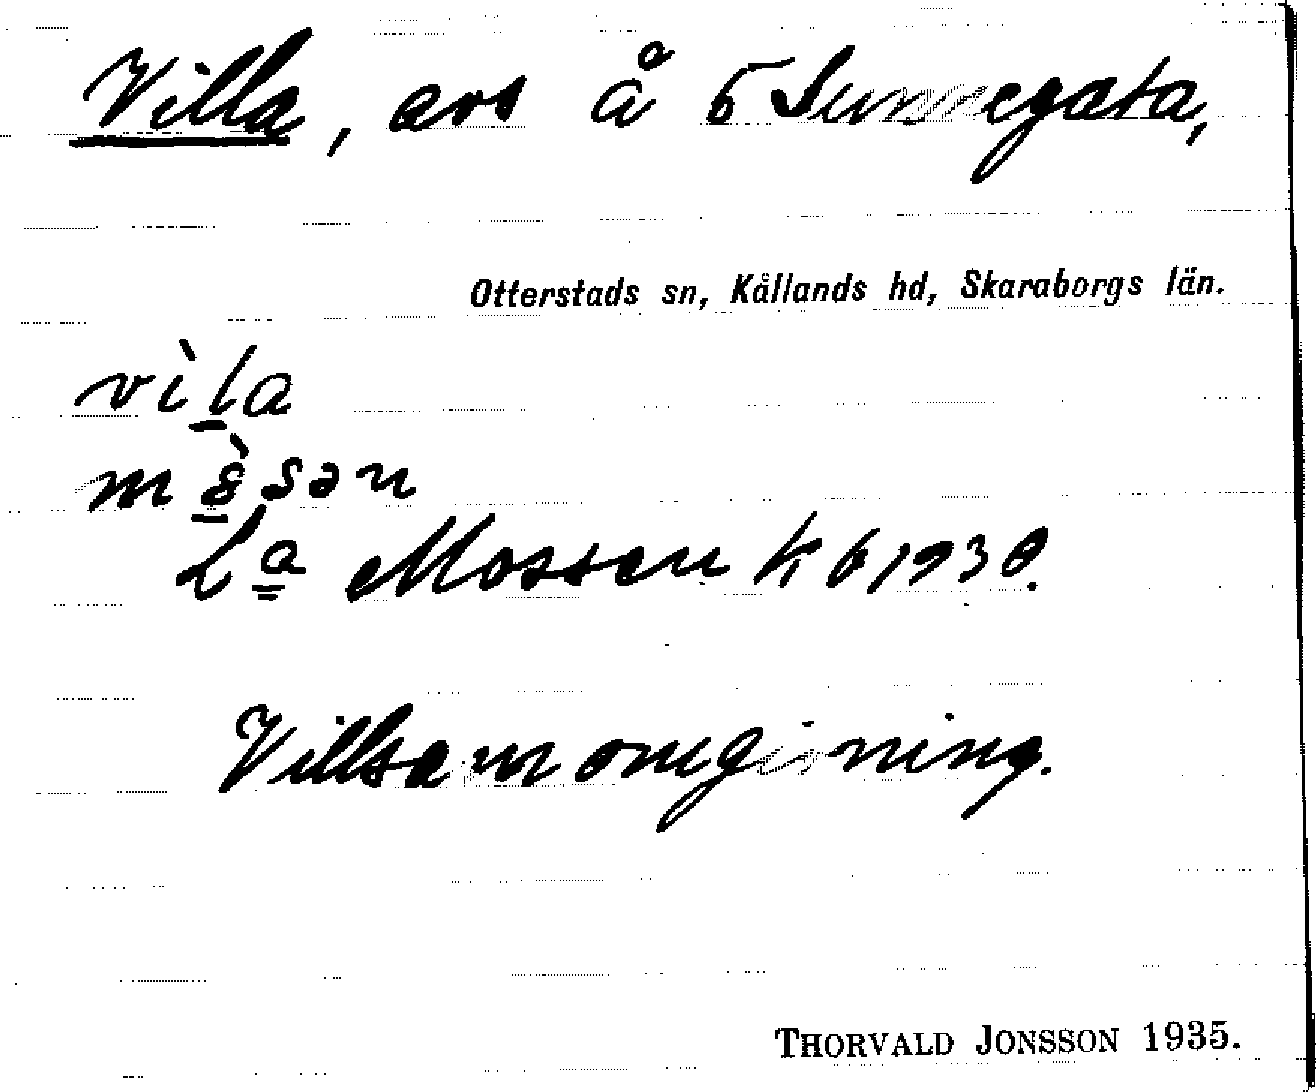 Villa, avs å 5 Sunnegata,
Otterstads sn, Kållands hd, Skaraborgs län.
vìla
mòsən
La Mossen kb 1930.
Villsam omgivning.
THORVALD JONSSON 1935.